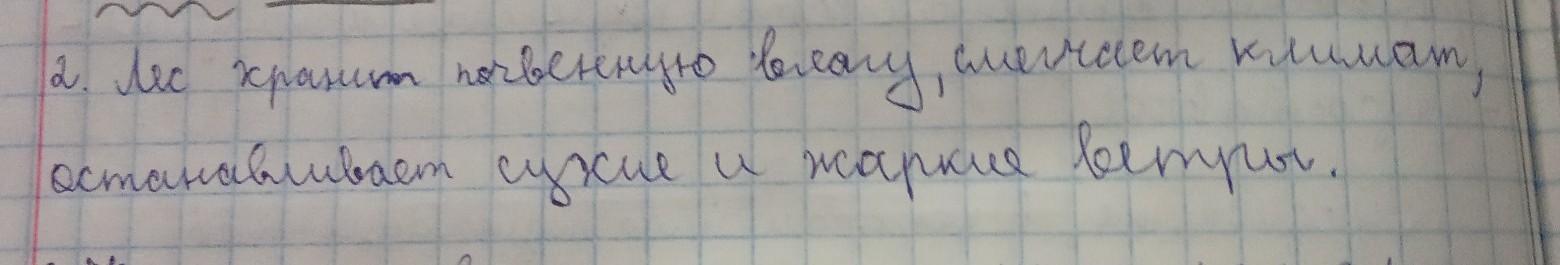 2. Лес хранит почвенную влагу, смягчает климат,
останавливает сухие и жаркие ветры.